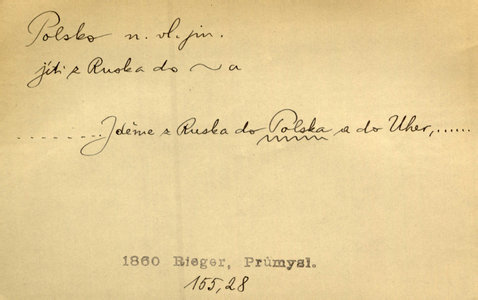 Polsko n. vl. jm.
jíti z Ruska do ~a
........Jdéme z Ruska do Polska a do Uher,......
1860 Rieger, Průmysl.
155,28